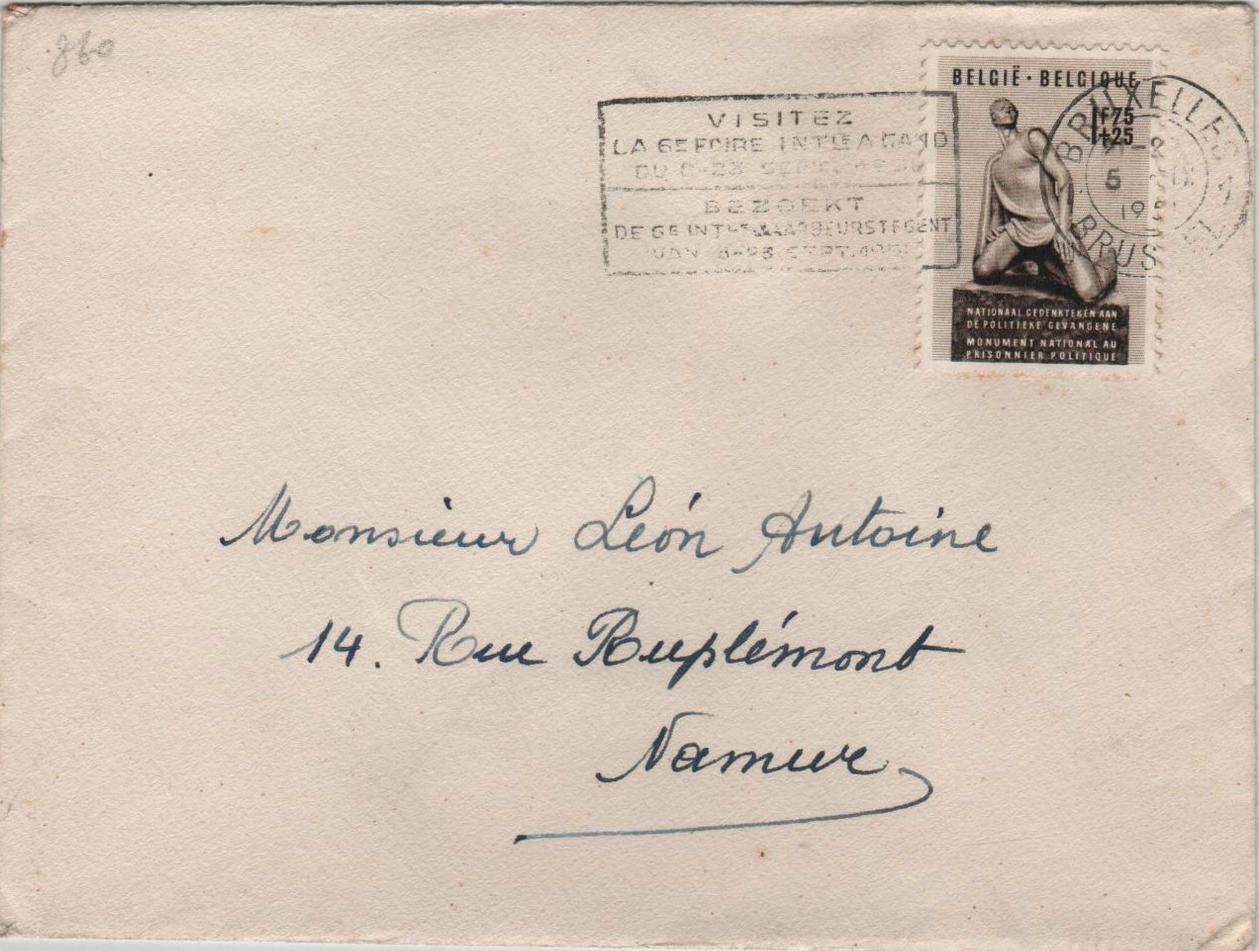 860
BELGIË · BELGIQUE
1F75
+25
NATIONAAL GEDENKTEKEN AAN
DE POLITIEKE GEVANGENE
MONUMENT NATIONAL AU
PRISONNIER POLITIQUE
VISITEZ
LA 6E FOIRE INTLE A GAND
DU 8-23 SEPT. 195
BEZOEKT
DE 6E INTle JAARBEURS TE GENT
VAN 8-23 SEPT. 1951
BRUXELLES
5
19
BRUS
Monsieur Léon Antoine
14. Rue Ruplémont
Namur